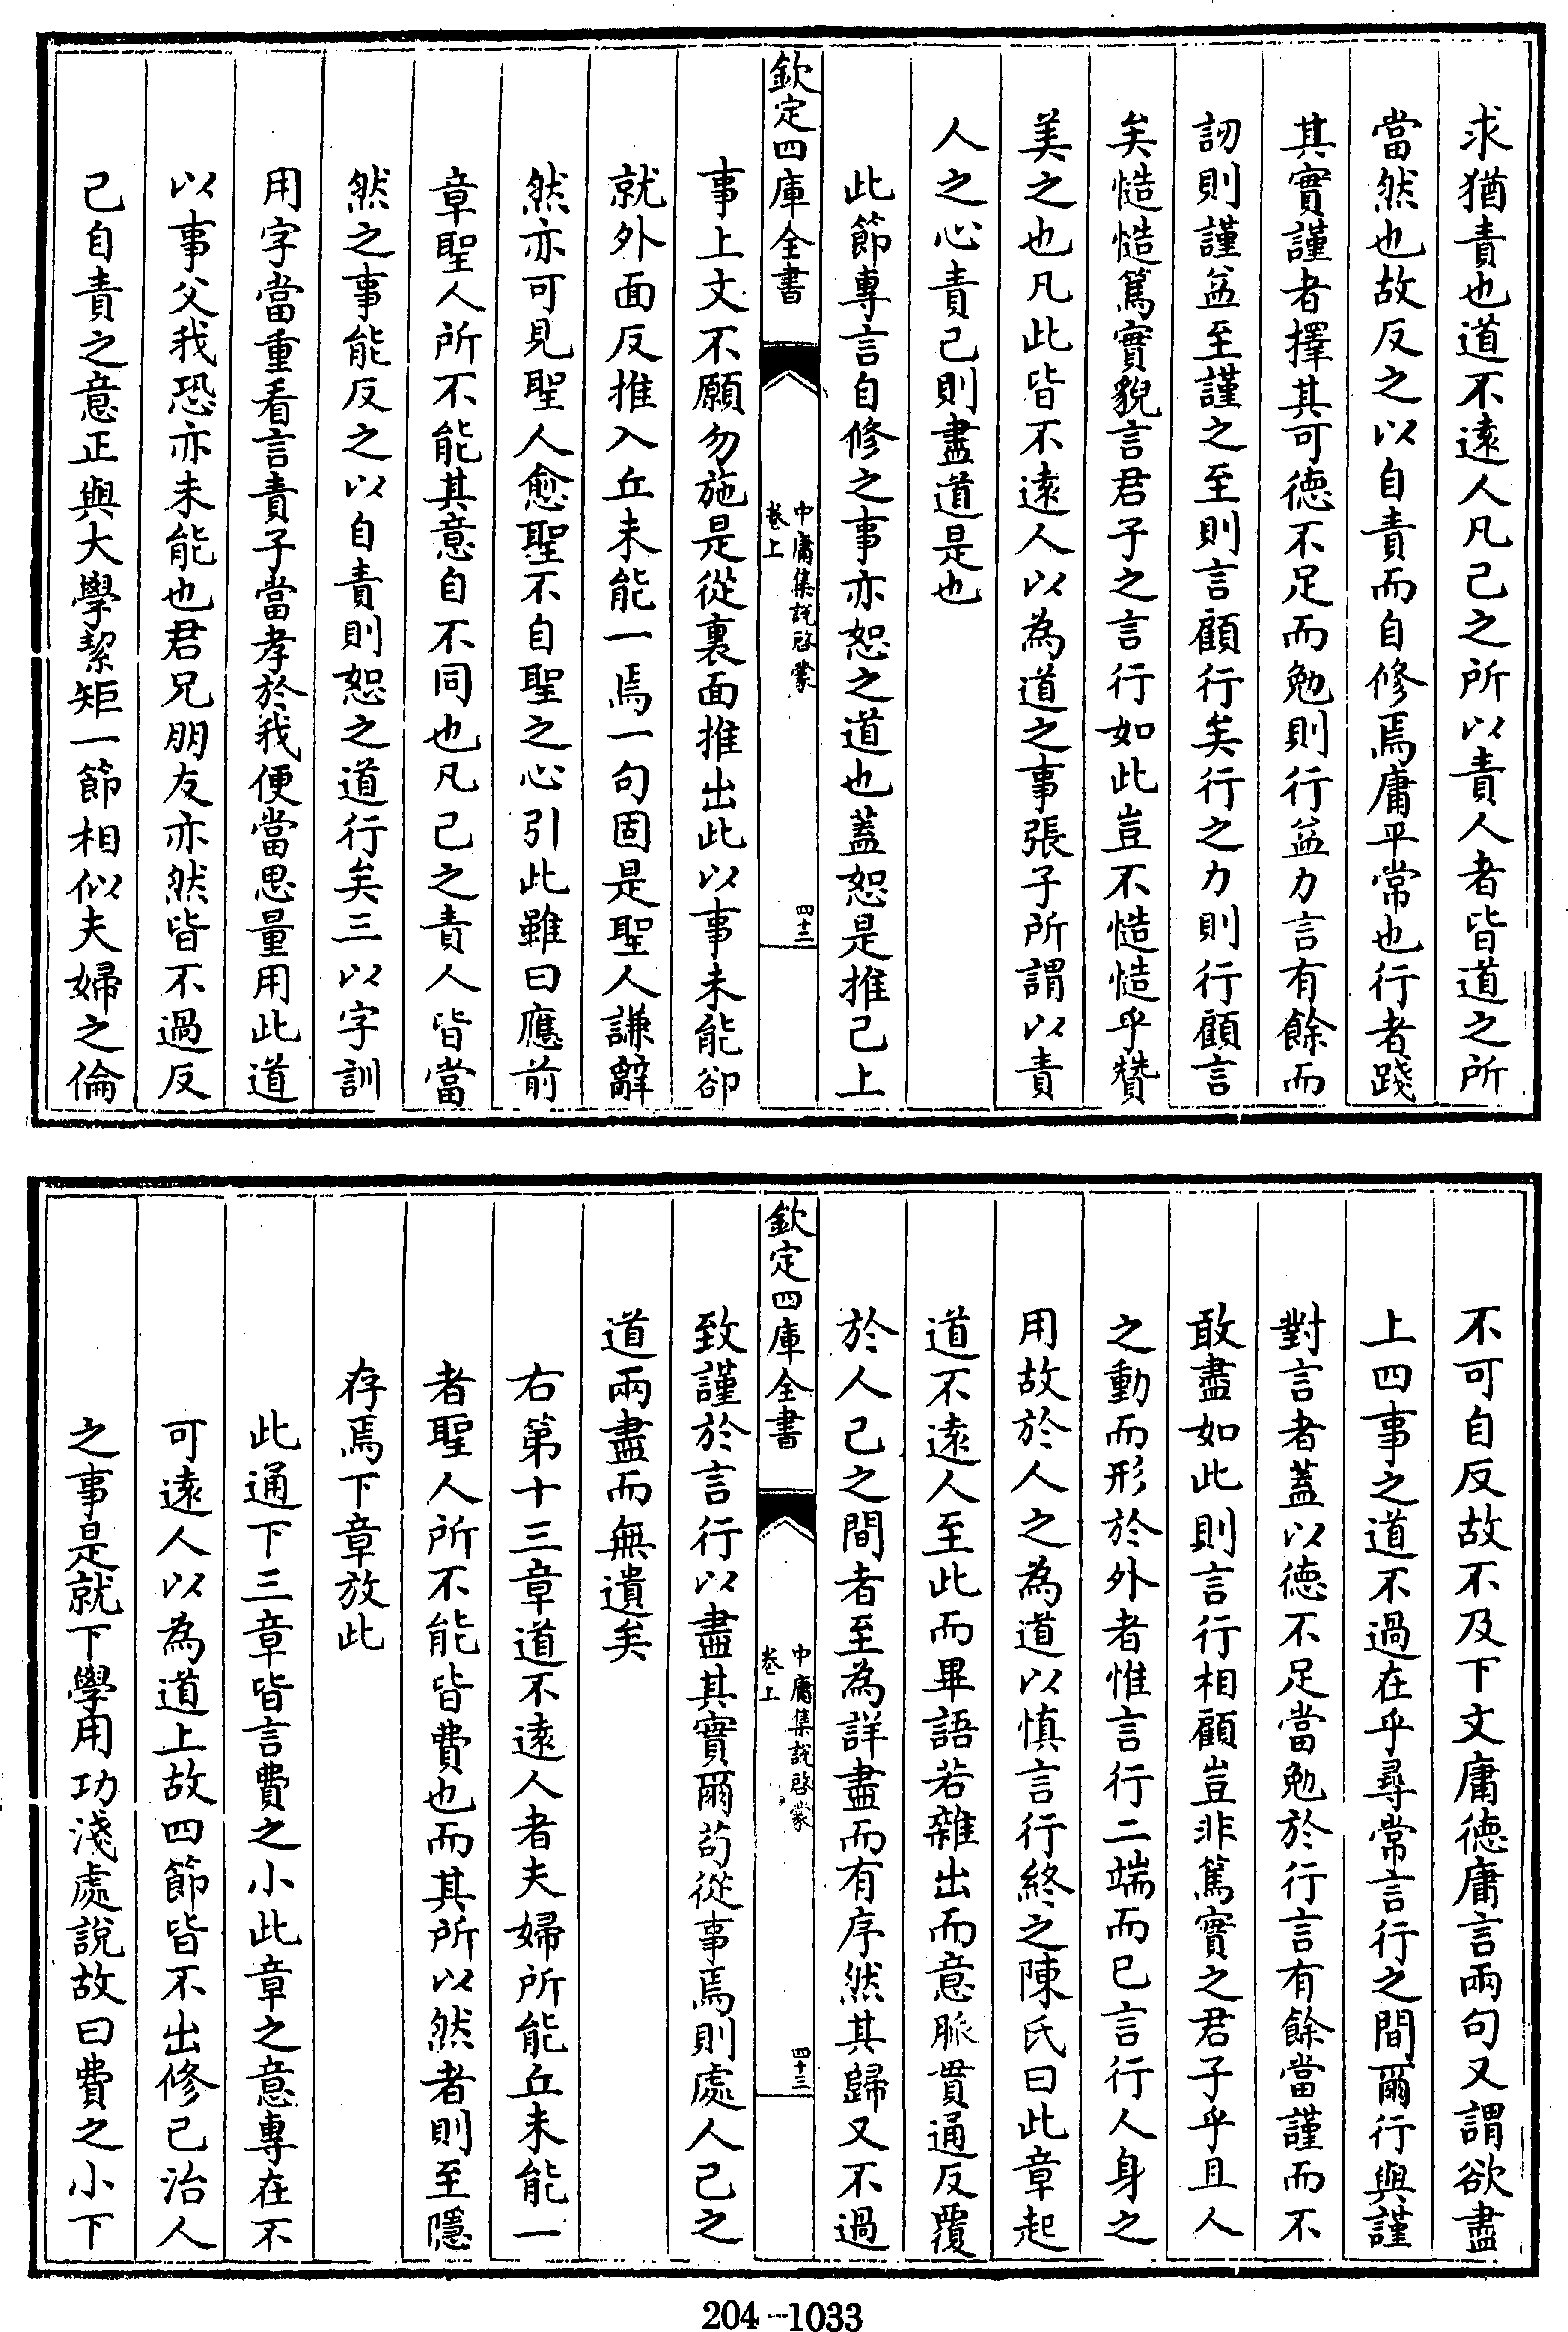 求猶責也道不遠人凡己之所以責人者皆道之所
當然也故反之以自責而自修焉庸平常也行者踐
其實謹者擇其可徳不足而勉則行益力言有餘而
訒則謹益至謹之至則言顧行矣行之力則行顧言
矣慥慥篤實貌言君子之言行如此豈不慥慥乎贊
美之也凡此皆不遠人以為道之事張子所謂以責
人之心責己則盡道是也
此節專言自修之事亦恕之道也蓋恕是推己上
欽定四庫全書
中庸集說啓蒙
卷上
四十二
事上文不願勿施是從裏面推出此以事未能卻
就外面反推入丘未能一焉一句固是聖人謙辭
然亦可見聖人愈聖不自聖之心引此雖曰應前
章聖人所不能其意自不同也凡己之責人皆當
然之事能反之以自責則恕之道行矣三以字訓
用字當重看言責子當孝於我便當思量用此道
以事父我恐亦未能也君兄朋友亦然皆不過反
己自責之意正與大學絜矩一節相似夫婦之倫
不可自反故不及下文庸徳庸言兩句又謂欲盡
上四事之道不過在乎尋常言行之間爾行與謹
對言者蓋以徳不足當勉於行言有餘當謹而不
敢盡如此則言行相顧豈非篤實之君子乎且人
之動而形於外者惟言行二端而已言行人身之
用故於人之為道以慎言行終之陳氏曰此章起
道不遠人至此而畢語若雜出而意脈貫通反覆
於人己之間者至為詳盡而有序然其歸又不過
欽定四庫全書
中庸集說啓蒙
卷上
四十三
致謹於言行以盡其實爾茍從事焉則處人己之
道兩盡而無遺矣
右第十三章道不遠人者夫婦所能丘未能一
者聖人所不能皆費也而其所以然者則至隱
存焉下章放此
此通下三章皆言費之小此章之意專在不
可遠人以為道上故四節皆不出修己治人
之事是就下學用功淺處說故曰費之小下
204-1033